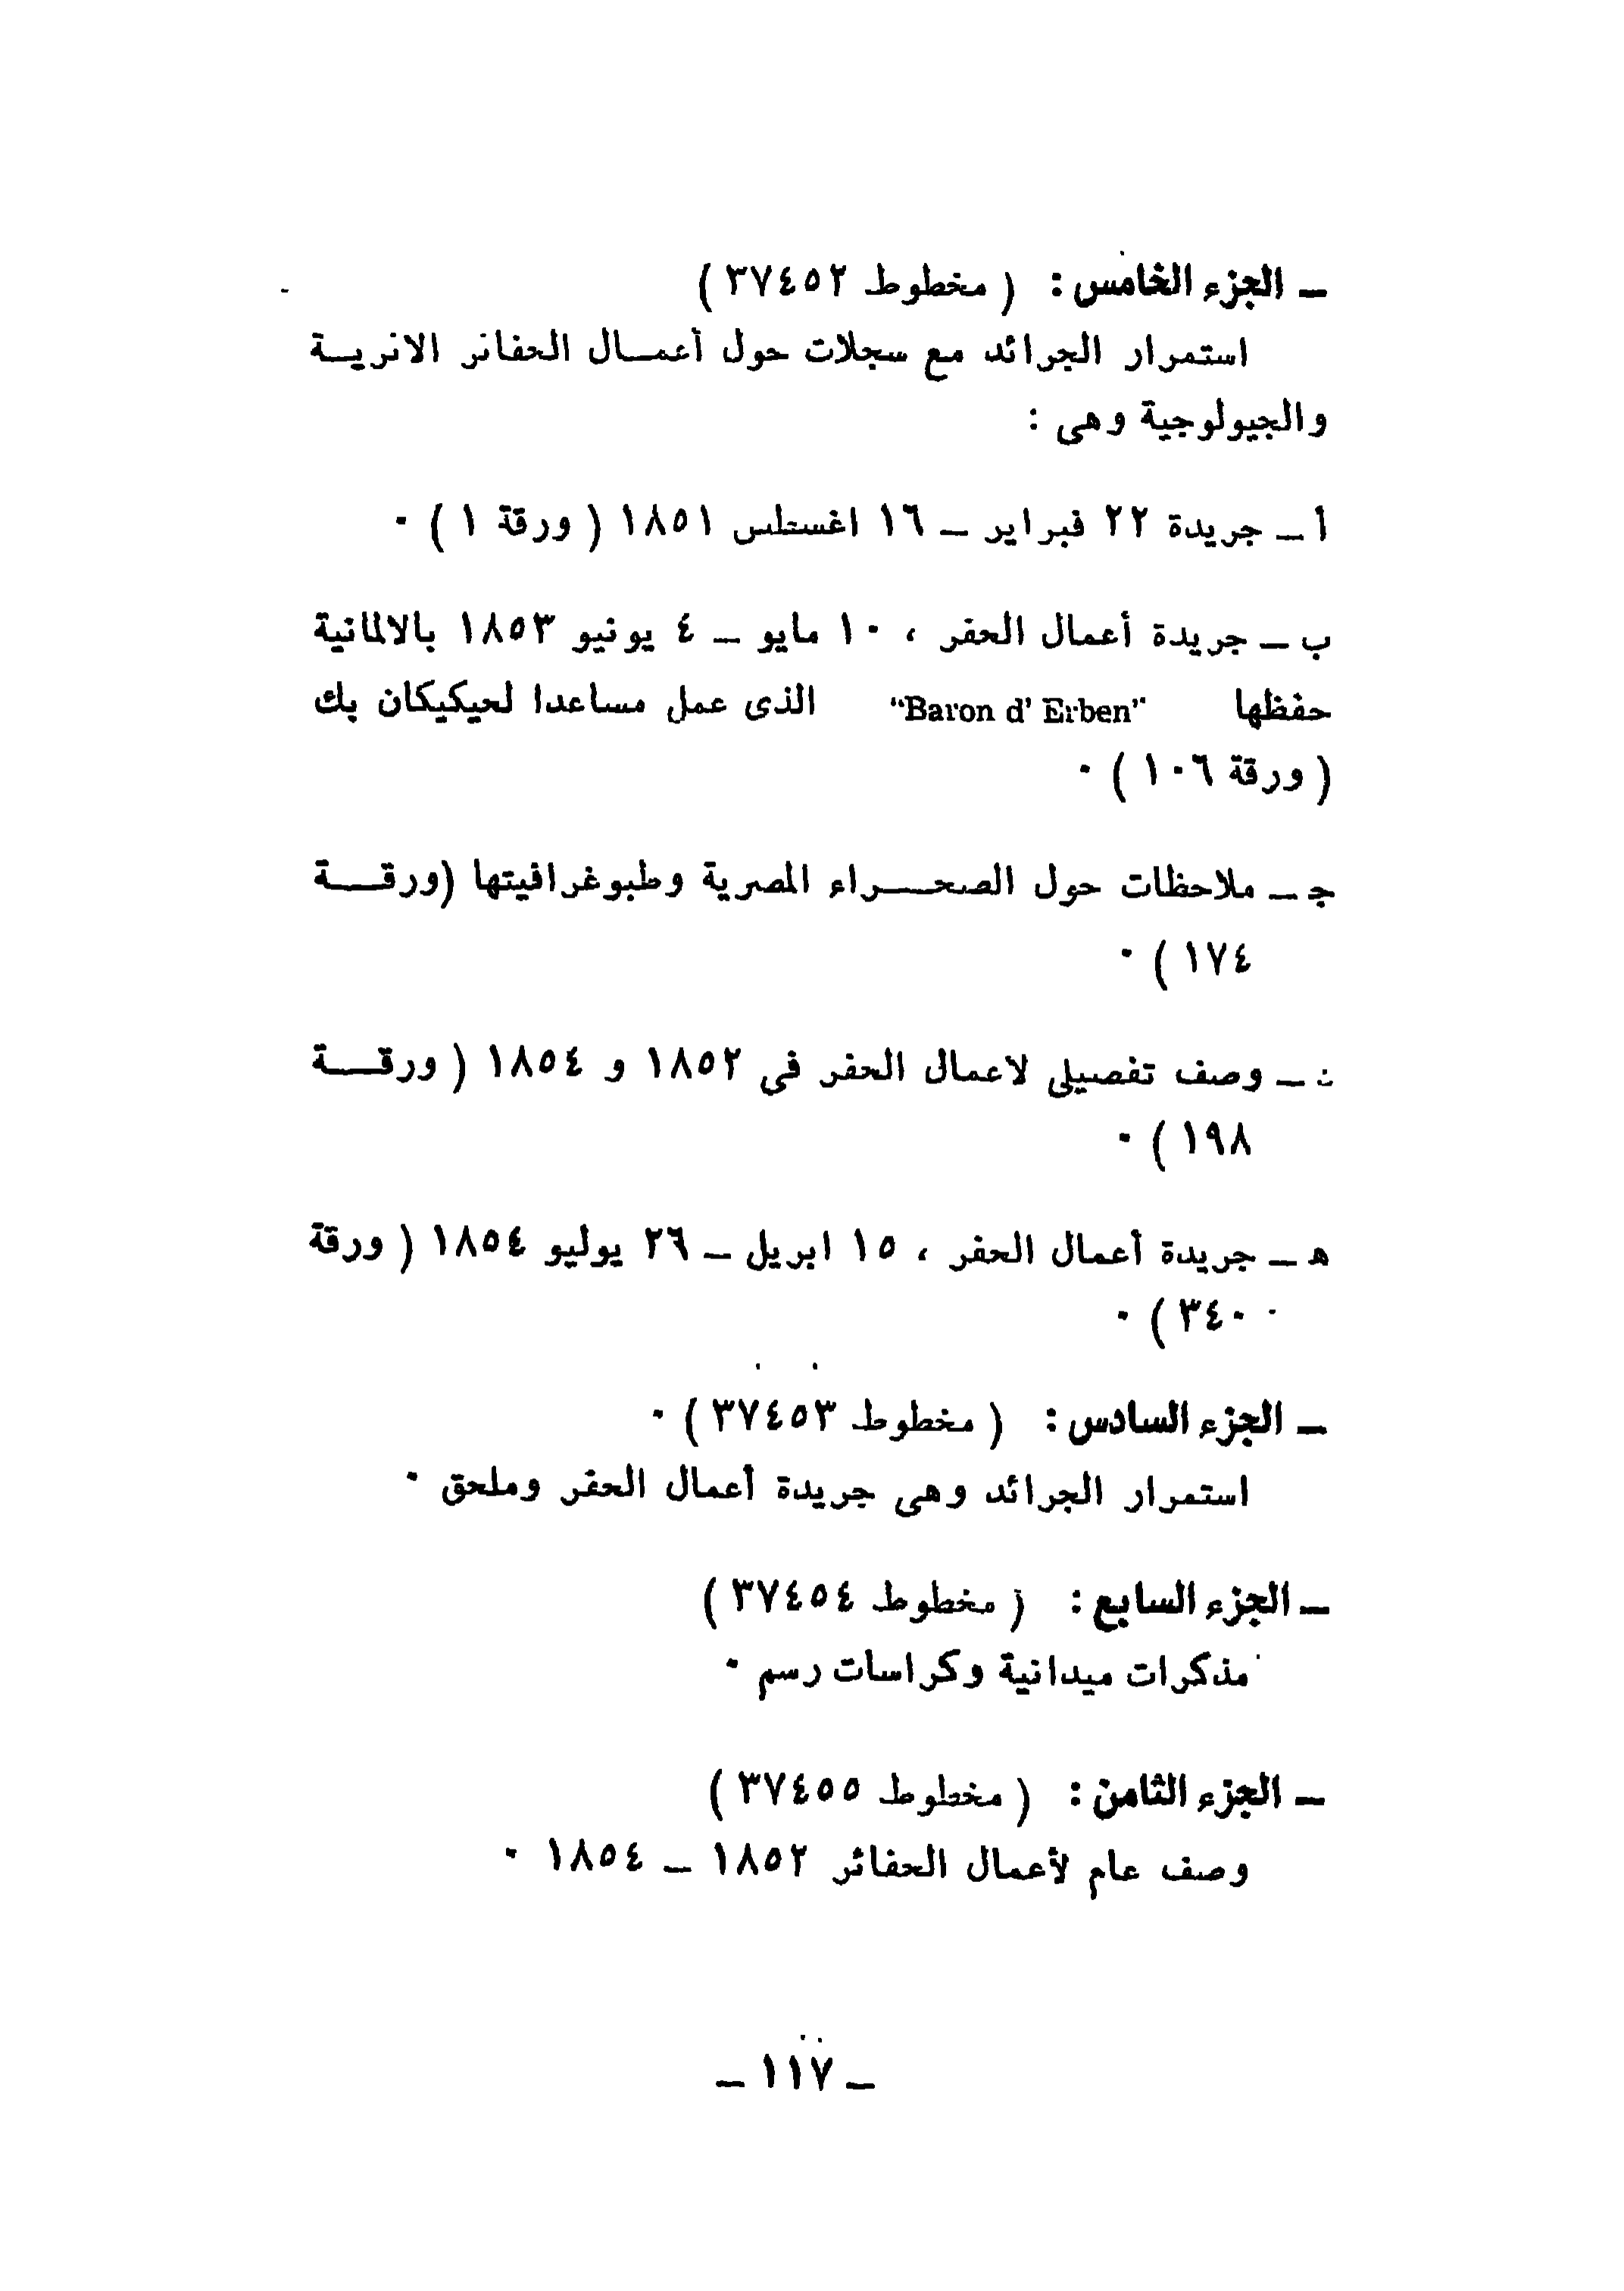 ــ الجزء الخامس : ( مخطوط ٣٧٤٥٢ )
استمرار الجرائد مع سجلات حول أعمال الحفائر الاثرية
والجيولوجية وهى :
أ ــ جريدة ٢٢ فبراير ــ ١٦ اغسطس ١٨٥١ ( ورقة ١ ) ٠
ب ــ جريدة أعمال الحفر ، ١٠ مايو ــ ٤ يونيو ١٨٥٣ بالالمانية
حفظها "Baron d' Erben" الذى عمل مساعدا لحيكيكان بك
( ورقة ١٠٦ ) ٠
جـ ــ ملاحظات حول الصحراء المصرية وطبوغرافيتها (ورقة
١٧٤ ) ٠
ــ وصف تفصيلى لاعمال الحفر فى ١٨٥٢ و ١٨٥٤ ( ورقة
١٩٨ ) ٠
هـ ــ جريدة أعمال الحفر ، ١٥ ابريل ــ ٢٦ يوليو ١٨٥٤ ( ورقة
٣٤٠ ) ٠
ــ الجزء السادس : ( مخطوط ٣٧٤٥٣ ) ٠
استمرار الجرائد وهى جريدة أعمال الحفر وملحق ٠
ــ الجزء السابع : ( مخطوط ٣٧٤٥٤ )
مذكرات ميدانية وكراسات رسم ٠
ــ الجزء الثامن : ( مخطوط ٣٧٤٥٥ )
وصف عام لأعمال الحفائر ١٨٥٢ ــ ١٨٥٤ ٠
ــ ١١٧ ــ